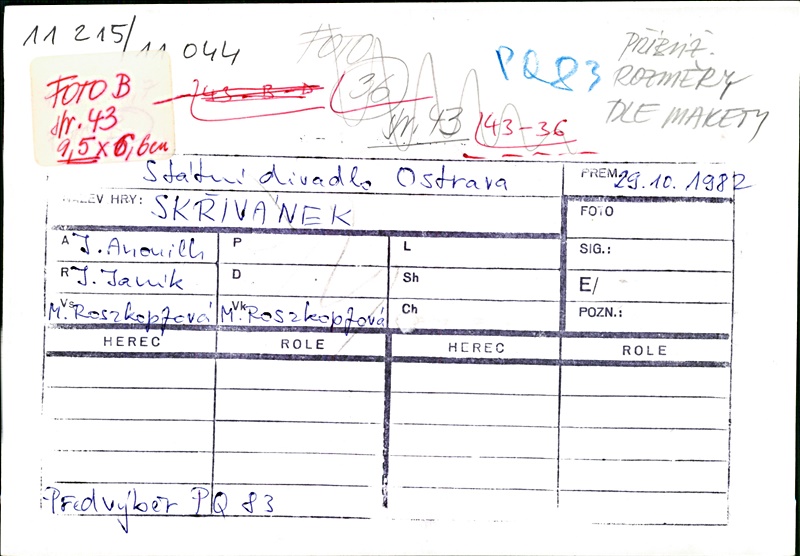 11 215/11 044
FOTO
36
PQ 83
PŘIBLIŽ.
ROZMĚRY
DLE MAKETY
FOTO B
str. 43
9,5 x 6,6cm
43-B-D
str. 43
43-36
Státní divadlo Ostrava
PREM. 29.10.1982
NÁZEV HRY: SKŘIVÁNEK
FOTO
A J. Anouilh
P
L
SIG.:
R J. Janík
D
Sh
E/
Vs M. Roszkopfová
Vk M. Roszkopfová
Ch
POZN.:
HEREC
ROLE
HEREC
ROLE
Předvýběr PQ 83